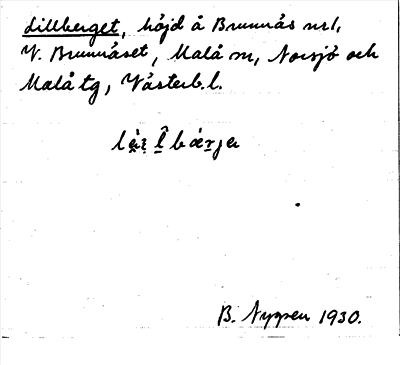 Lillberget, höjd å Brunnäs nr 1,
V. Brunnåset, Malå sn, Norsjö och
Malå tg, Västerb. l.
B. Nygren 1930.